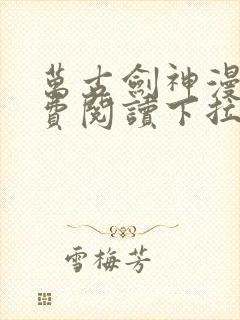 萬古劍神漫
費閱讀下拉
雪梅芳